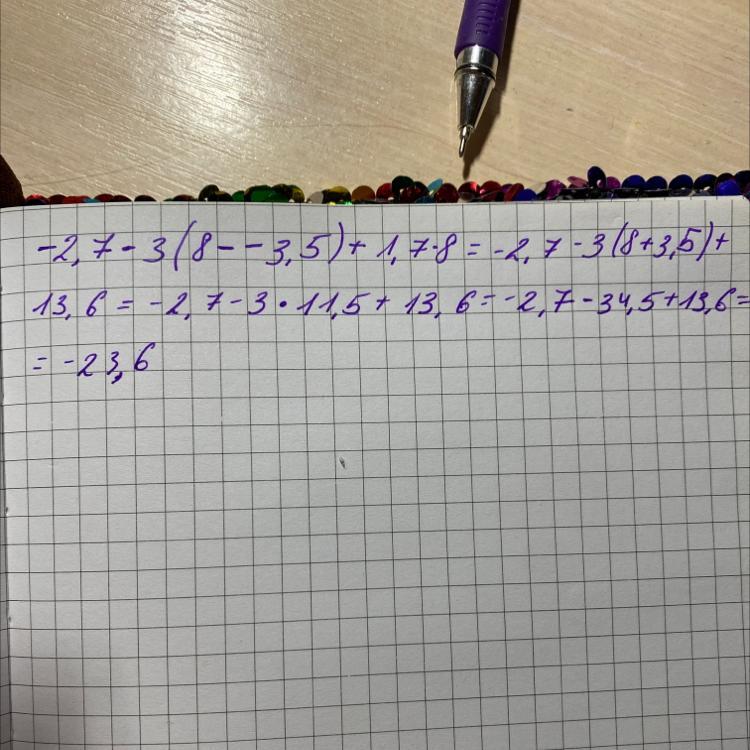 -2,7 - 3(8 - -3,5) + 1,7·8 = -2,7 - 3(8+3,5)+
13,6 = -2,7 - 3 · 11,5 + 13,6 = -2,7 - 34,5 + 13,6 =
= -23,6